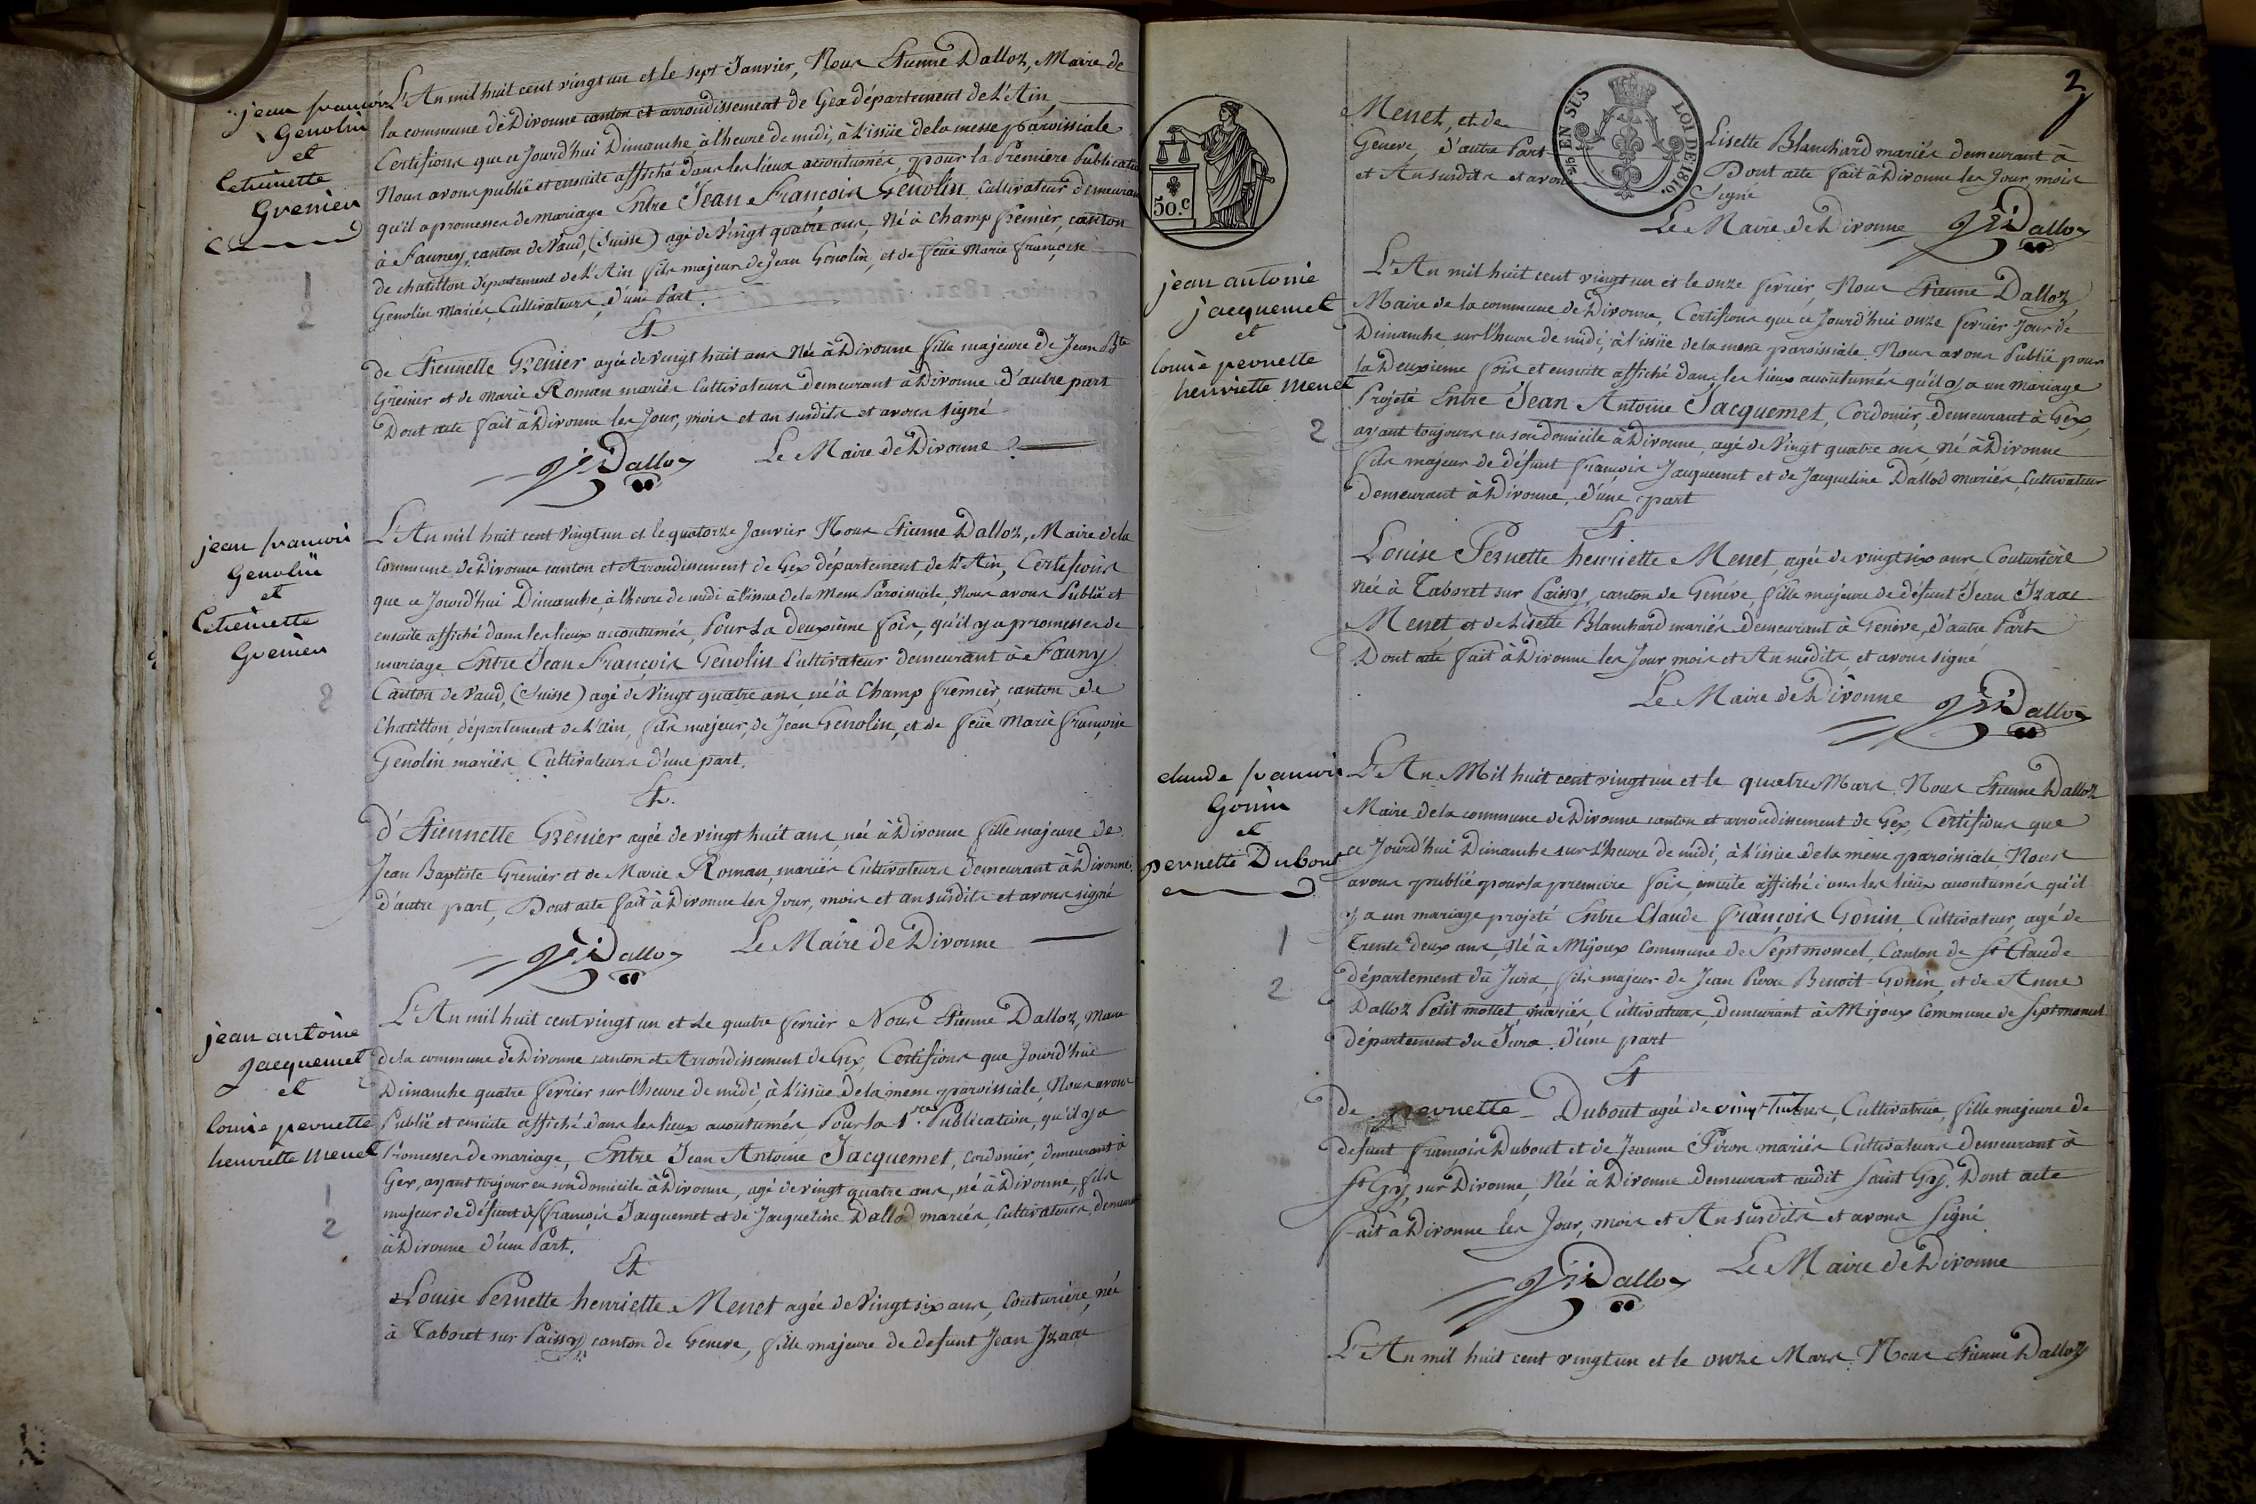 jean francois
Genolin
et
Etiennette
Grenier
1
2
L'An mil huit cent vingt un et le sept Janvier, Nous Etienne Dalloz, Maire de
la commune de Divonne canton et arrondissement de Gex département de L'Ain,
Certifions que ce Jourd'hui Dimanche à l'heure de midi, à L'issüe de la messe paroissiale
Nous avons publié et ensuite affiché dans les lieux accoutumés, pour la Première Publication
qu'il a promesses de mariage Entre Jean François Genolin Cultivateur demeurant
à Founex, canton de Vaud, (Suisse) agé de Vingt quatre ans, Né à Champ fremier, canton
de chatillon département de L'Ain fils majeur de Jean Genolin, et de feüe Marie françoise
Genolin Mariés, Cultivateurs, d'une Part.
Et
de Etiennette Grenier agée de vingt huit ans Née à Divonne fille majeure de Jean Bte
Grenier et de Marie Roman mariés Cultivateurs demeurant à Divonne d'autre part
Dont acte fait à Divonne les Jour, mois et an susdits et avons signé
Le Maire de Divonne
Dalloz
jean francois
Genolin
et
Etiennette
Grenier
2
L'An mil huit cent Vingt un et le quatorze Janvier Nous Etienne Dalloz, Maire de la
Commune de Divonne canton et Arrondissement de Gex département de L'Ain, Certifions
que ce Jourd'hui Dimanche, à L'heure de midi à L'issue de la Messe Paroissiale, Nous avons Publié et
ensuite affiché dans les lieux accoutumés, Pour La deuxième fois, qu'il y a promesses de
mariage Entre Jean François Genolin Cultivateur demeurant à Founex
Canton de Vaud, (Suisse) agé de Vingt quatre ans, né à Champ fremier, canton de
Chatillon, département de L'ain, fils majeur, de Jean Genolin, et de feüe Marie Françoise
Genolin mariés Cultivateurs d'une part.
Et.
d'Etiennette Grenier agée de vingt huit ans, née à Divonne fille majeure de
Jean Baptiste Grenier et de Marie Roman, mariés Cultivateurs demeurant à Divonne
d'autre part, Dont acte fait à Divonne les Jour, mois et an susdits et avons signé
Le Maire de Divonne
Dalloz
jean antoine
Jacquemet
et
louise pernette
henriette Menet
1
2
L'An mil huit cent vingt un et Le quatre fevrier Nous Etienne Dalloz, Maire
de la commune de Divonne canton et Arrondissement de Gex, Certifions que Jourd'hui
Dimanche quatre fevrier sur l'heure de midi, à L'issüe de la messe paroissiale, Nous avons
Publié et ensuite affiché dans les lieux accoutumés, Pour la 1re Publication, qu'il y a
Promesses de mariage, Entre Jean Antoine Jacquemet, cordonier, demeurant à
Gex, ayant toujours eu son domicile à Divonne, agé de vingt quatre ans, né à Divonne, fils
majeur de défunt françois Jacquemet et de Jacqueline Dallod mariés, Cultivateurs, demeurant
à Divonne d'une Part.
Et
Louise Pernette henriette Menet agée de Vingt six ans, Couturière, née
à Tabouet sur Paissy, canton de Geneve, fille majeure de defunt Jean Izaac
2
50.c
EN SUS
LOI DE 1816.
Menet, et de Lisette Blanchard mariés demeurant à
Geneve, d'autre Part Dont acte fait à Divonne les Jour, mois
et An susdits et avons Signé
Le Maire de Divonne Dalloz
jean antoine
jacquemet
et
louise pernette
henriette Menet
2
L'An mil huit cent vingt un et le onze fevrier, Nous Etienne Dalloz,
Maire de la commune de Divonne, Certifions que ce Jourd'hui onze fevrier Jour de
Dimanche, sur l'heure de midi, à l'issüe de la messe paroissiale. Nous avons Publié pour
la Deuxieme fois et ensuite affiché dans les lieux accoutumés qu'il y a un mariage
Projeté Entre Jean Antoine Jacquemet, Cordonier, demeurant à Gex,
ayant toujours eu son domicile à Divonne, agé de Vingt quatre ans, Né à Divonne
fils majeur de défunt françois Jacquemet et de Jacqueline Dallod mariés, Cultivateur
demeurant à Divonne, d'une part
Et
Louise Pernette henriette Menet, agée de vingt six ans, Couturière
Née à Tabouet sur Paissy, canton de Genève, fille majeure de défunt Jean Izaac
Menet, et de Lisette Blanchard mariés demeurant à Genève, d'autre Part
Dont acte fait à Divonne les Jour, mois et An susdits, et avons signé
Le Maire de Divonne Dalloz
claude francois
Gonin
et
pernette Dubout
1
2
L'An Mil huit cent vingt un et le quatre Mars, Nous Etienne Dalloz
Maire de la commune de Divonne canton et arrondissement de Gex, Certifions que
ce Jourd'hui Dimanche sur L'heure de midi, à L'issüe de la messe paroissiale Nous
avons publié pour la premiere fois, ensuite affiché dans les lieux accoutumés qu'il
y a un mariage projeté Entre Claude françois Gonin, Cultivateur, agé de
Trente deux ans, Né à Mijoux Commune de Septmoncel, Canton de St Claude
département du Jura, fils majeur de Jean Pierre Benoit-Gonin, et de Anne
Dalloz Petit mottet, mariés, Cultivateurs, demeurant à Mijoux Commune de Septmoncel
département du Jura d'une part
Et
de pernette Dubout agée de vingt huit ans, Cultivatrice, fille majeure de
defunt François Dubout et de Jeanne Piron mariés Cultivateurs demeurant à
St Gix, sur Divonne, Née à Divonne demeurant audit Saint Gix. Dont acte
fait à Divonne les Jour, mois et An susdits et avons Signé
Le Maire de Divonne
Dalloz
L'An mil huit cent vingt un et le onze Mars Nous Etienne Dalloz